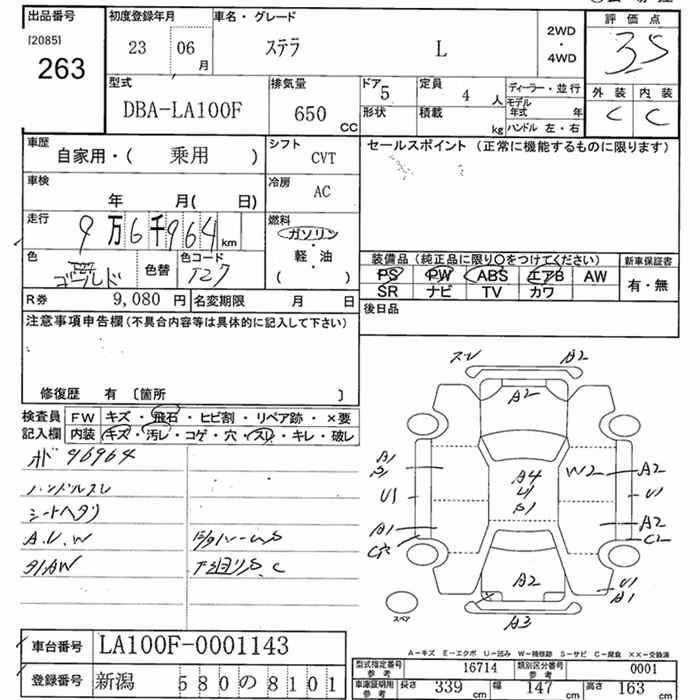 出品番号 初度登録年月 車名・グレード 評価点
[2085] 263 23 06 月 ステラ L 2WD・4WD 3.5
型式 排気量 ドア 5 定員 4 人 ディーラー・並行 外装 内装
DBA-LA100F 650 CC 形状 積載 kg モデル年式 年 C C
ハンドル 左・右
車歴 シフト セールスポイント (正常に機能するものに限ります)
自家用・( 乗用 ) CVT
車検 冷房
年 月( 日) AC
走行 燃料
9万6千964 km ガソリン・軽油
色 色替 色コード ( )
ゴールド T27
装備品 (純正品に限り○をつけてください) 新車保証書
PS PW ABS エアB AW 有・無
SR ナビ TV カワ
R券 9,080 円 名変期限 月 日 後日品
注意事項申告欄 (不具合内容等は具体的に記入して下さい)
修復歴 有 〔箇所 〕
検査員 FW キズ・飛石・ヒビ割・リペア跡・×要
記入欄 内装 キズ・汚レ・コゲ・穴・スレ・キレ・破レ
96964
ハンドルスレ
シートヘタリ
A.V.W
下廻りS.C
A2
A2
A1 A4 W2 A2
U1 U1 U1
A1 A2
C2
A2 U1
A1
スペア A3
A-キズ E-エクボ U-凹み W-補修跡 S-サビ C-腐食 XX-交換済
車台番号 LA100F-0001143
登録番号 新潟 580の8101
型式指定番号 参考 16714 類別区分番号 参考 0001
車庫証明用 参考 長さ 339 cm 幅 147 cm 高さ 163 cm